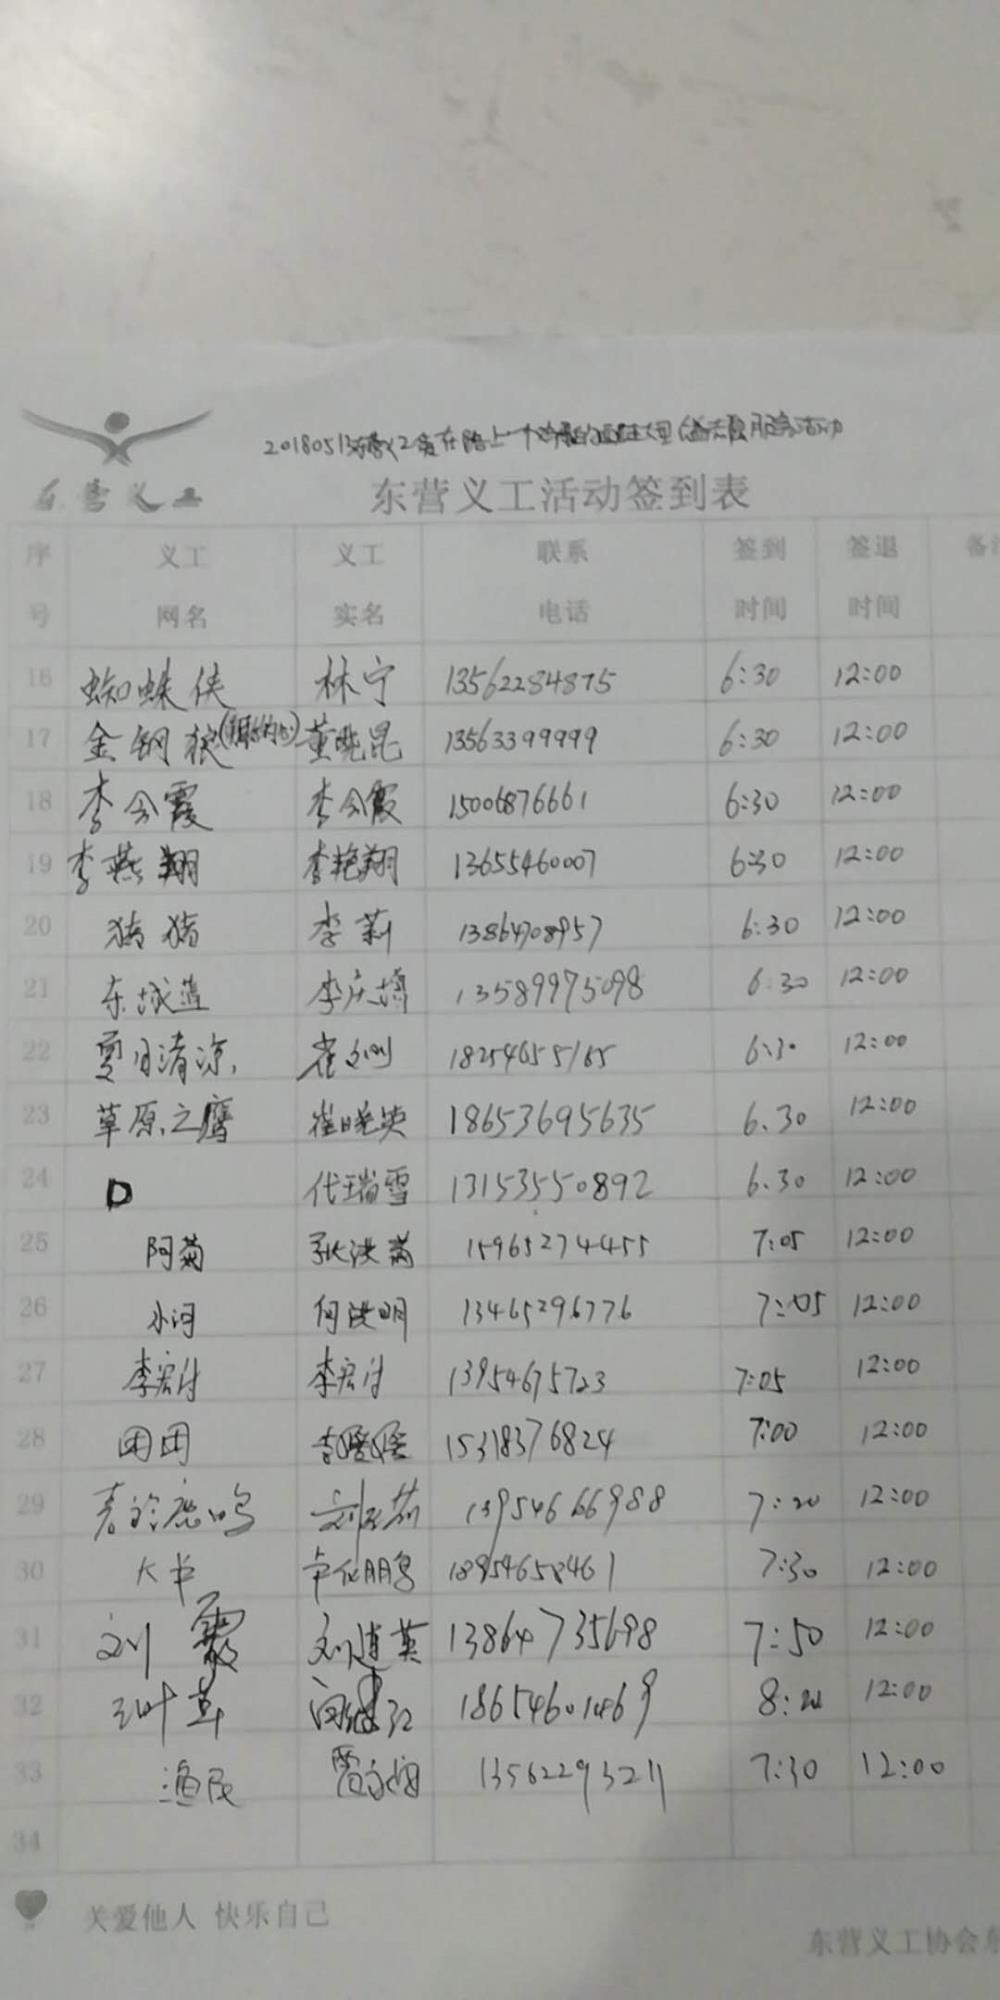 东营义工
东营义工活动签到表
序号 义工网名 义工实名 联系电话 签到时间 签退时间
16 蜘蛛侠 林宁 13562284875 6:30 12:00
17 金钢狼 董晓昆 13563399999 6:30 12:00
18 李会霞 李会霞 15006876661 6:30 12:00
19 李燕翔 李艳翔 13655460007 6:30 12:00
20 猪猪 李莉 13864708957 6:30 12:00
21 东城蓝 13589975098 6:30 12:00
22 夏日清凉 18254655165 6:30 12:00
23 草原之鹰 崔晓英 18653695635 6.30 12:00
24 D 代瑞雪 13153550892 6.30 12:00
25 阿菊 张洪菊 15965274455 7:05 12:00
26 小河 何洪明 13465296776 7:05 12:00
27 李宏付 李宏付 13954675723 7:05 12:00
28 团团 15318376824 7:00 12:00
29 13954666988 7:20 12:00
30 大书 18954658461 7:30 12:00
31 刘霞 刘道英 13864735698 7:50 12:00
32 三叶草 18654601469 8:20 12:00
33 渔民 13562293211 7:30 12:00
34
关爱他人 快乐自己
东营义工协会